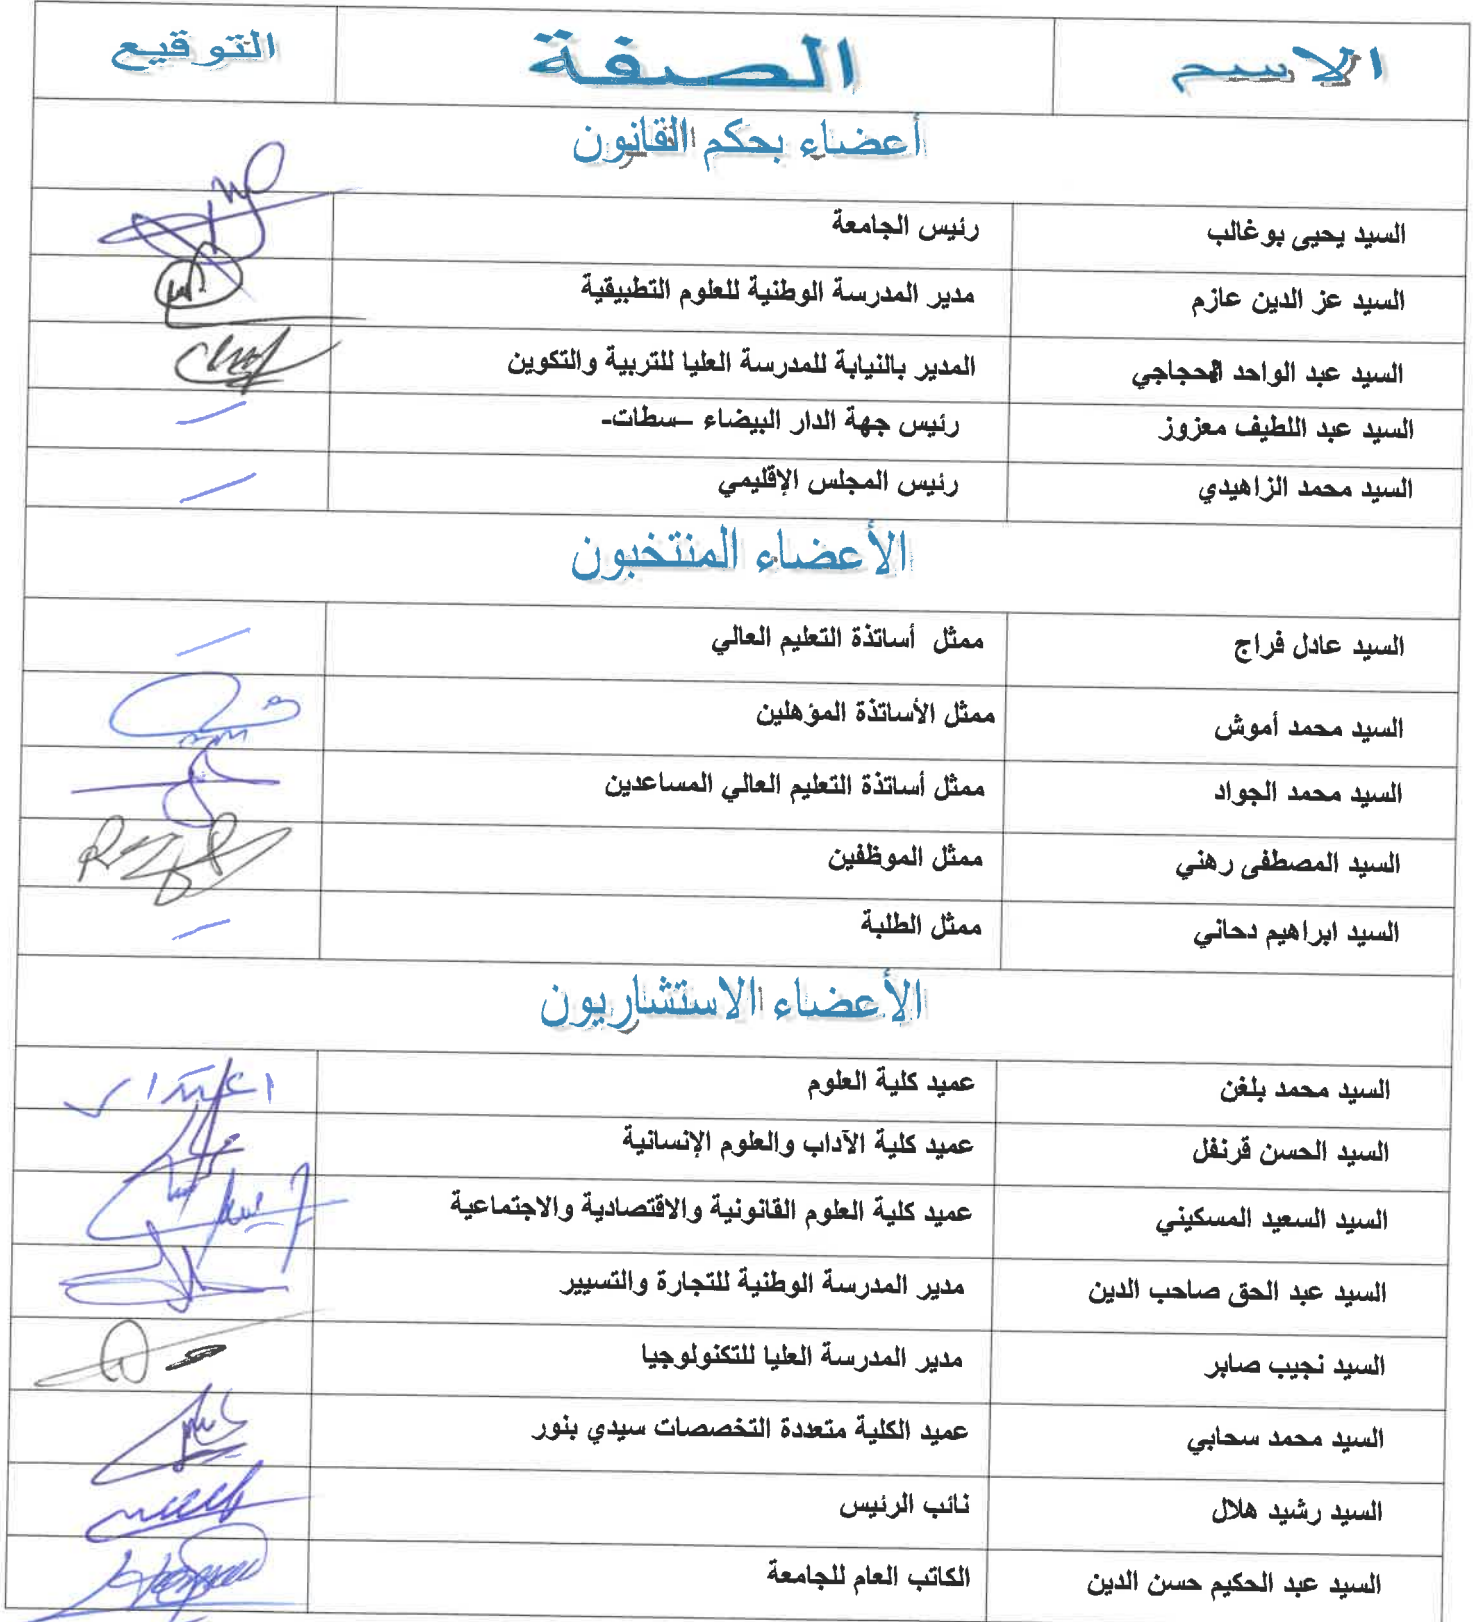 الاسم الصفة التوقيع
أعضاء بحكم القانون
السيد يحيى بوغالب رئيس الجامعة
السيد عز الدين عازم مدير المدرسة الوطنية للعلوم التطبيقية
السيد عبد الواحد الحجاجي المدير بالنيابة للمدرسة العليا للتربية والتكوين
السيد عبد اللطيف معزوز رئيس جهة الدار البيضاء –سطات-
السيد محمد الزاهيدي رئيس المجلس الإقليمي
الأعضاء المنتخبون
السيد عادل فراج ممثل أساتذة التعليم العالي
السيد محمد أموش ممثل الأساتذة المؤهلين
السيد محمد الجواد ممثل أساتذة التعليم العالي المساعدين
السيد المصطفى رهني ممثل الموظفين
السيد ابراهيم دحاني ممثل الطلبة
الأعضاء الاستشاريون
السيد محمد بلغن عميد كلية العلوم
السيد الحسن قرنفل عميد كلية الآداب والعلوم الإنسانية
السيد السعيد المسكيني عميد كلية العلوم القانونية والاقتصادية والاجتماعية
السيد عبد الحق صاحب الدين مدير المدرسة الوطنية للتجارة والتسيير
السيد نجيب صابر مدير المدرسة العليا للتكنولوجيا
السيد محمد سحابي عميد الكلية متعددة التخصصات سيدي بنور
السيد رشيد هلال نائب الرئيس
السيد عبد الحكيم حسن الدين الكاتب العام للجامعة